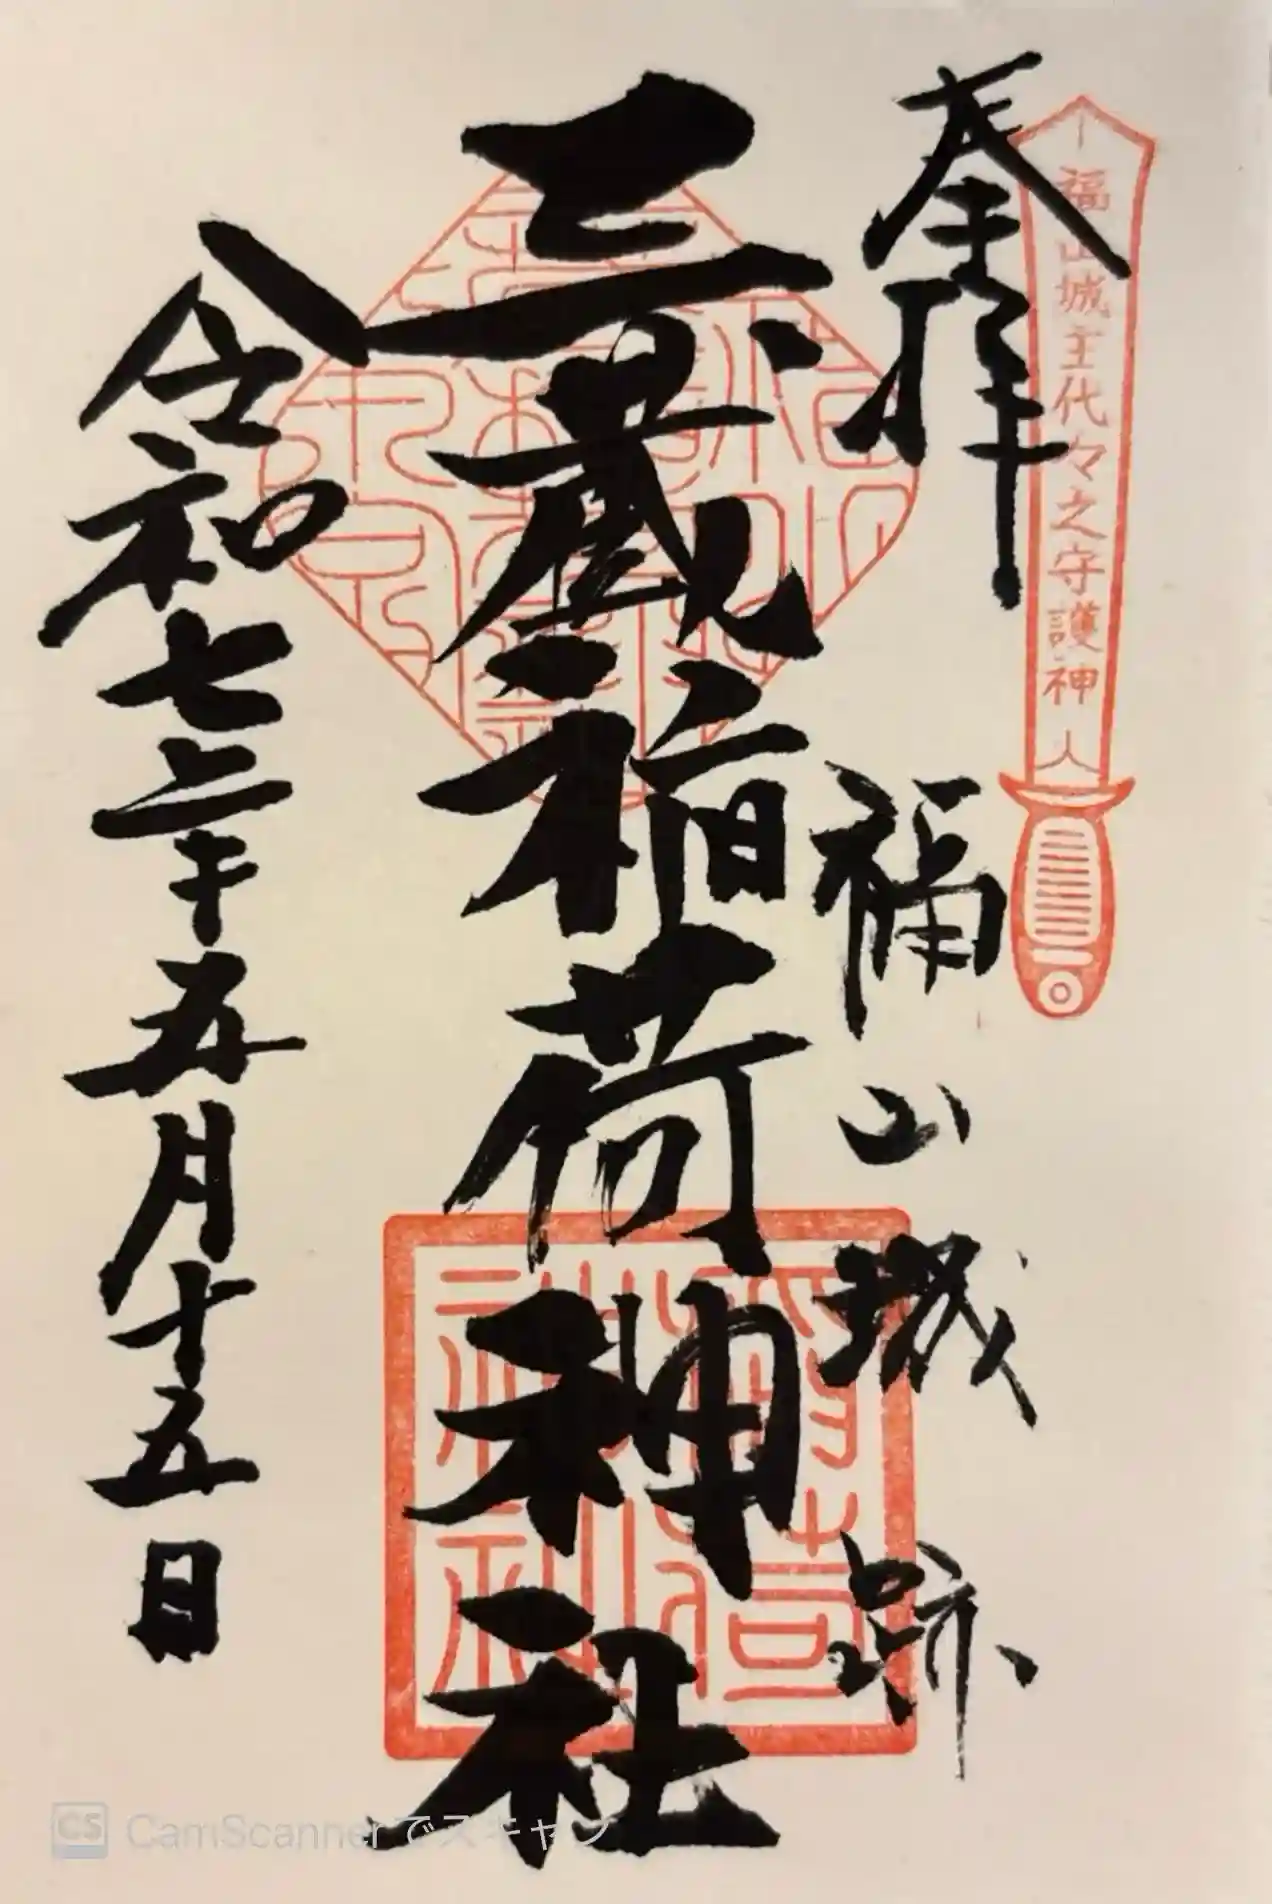 奉拝
福山城主代々之守護神
福山城跡
三蔵稲荷神社
令和七年五月十五日
CS CamScannerでスキャン